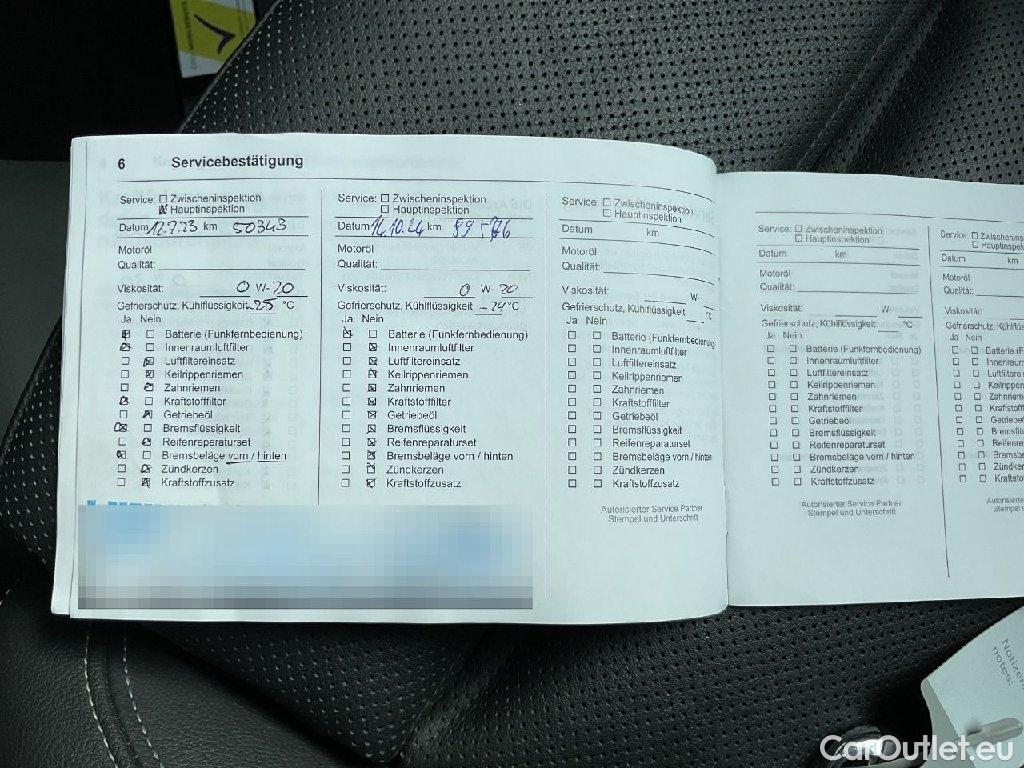 6 Servicebestätigung
Service: Zwischeninspektion
Hauptinspektion
Datum 12.7.23 km 50343
Motoröl
Qualität:
Viskosität: 0 W-20
Gefrierschutz, Kühlflüssigkeit -25 °C
Ja Nein
Batterie (Funkfernbedienung)
Innenraumluftfilter
Luftfiltereinsatz
Keilrippenriemen
Zahnriemen
Kraftstofffilter
Getriebeöl
Bremsflüssigkeit
Reifenreparaturset
Bremsbeläge vorn / hinten
Zündkerzen
Kraftstoffzusatz
Service: Zwischeninspektion
Hauptinspektion
Datum 16.10.24 km
Motoröl
Qualität:
Viskosität: 0 W-20
Gefrierschutz, Kühlflüssigkeit -24 °C
Ja Nein
Batterie (Funkfernbedienung)
Innenraumluftfilter
Luftfiltereinsatz
Keilrippenriemen
Zahnriemen
Kraftstofffilter
Getriebeöl
Bremsflüssigkeit
Reifenreparaturset
Bremsbeläge vorn / hinten
Zündkerzen
Kraftstoffzusatz
Service: Zwischeninspektion
Hauptinspektion
Datum km
Motoröl
Qualität:
Viskosität: W-
Gefrierschutz, Kühlflüssigkeit °C
Ja Nein
Batterie (Funkfernbedienung
Innenraumluftfilter
Luftfiltereinsatz
Keilrippenriemen
Zahnriemen
Kraftstofffilter
Getriebeöl
Bremsflüssigkeit
Reifenreparaturset
Bremsbeläge vorn / hinten
Zündkerzen
Kraftstoffzusatz
Autorisierter Service Partner
Stempel und Unterschrift
Service: Zwischeninspektion
Hauptinspektion
Datum km
Motoröl
Qualität:
Viskosität: W-
Gefrierschutz, Kühlflüssigkeit °C
Ja Nein
Batterie (Funkfernbedienung)
Innenraumluftfilter
Luftfiltereinsatz
Keilrippenriemen
Zahnriemen
Kraftstofffilter
Getriebeöl
Bremsflüssigkeit
Reifenreparaturset
Bremsbeläge vorn / hinten
Zündkerzen
Kraftstoffzusatz
Autorisierter Service Partner
Stempel und Unterschrift
Service: Zwischenins
Hauptinspek
Datum km
Motoröl
Qualität:
Viskosität:
Gefrierschutz, Kühlflüs
Ja Nein
Batterie (F
Innenraum
Luftfiltere
Keilrippen
Zahnriem
Kraftstoff
Getriebeö
Bremsflüs
Reifenrep
Bremsbe
Zündker
Kraftstof
Autorisiert
Stemp
Notizen
notes:
CarOutlet.eu